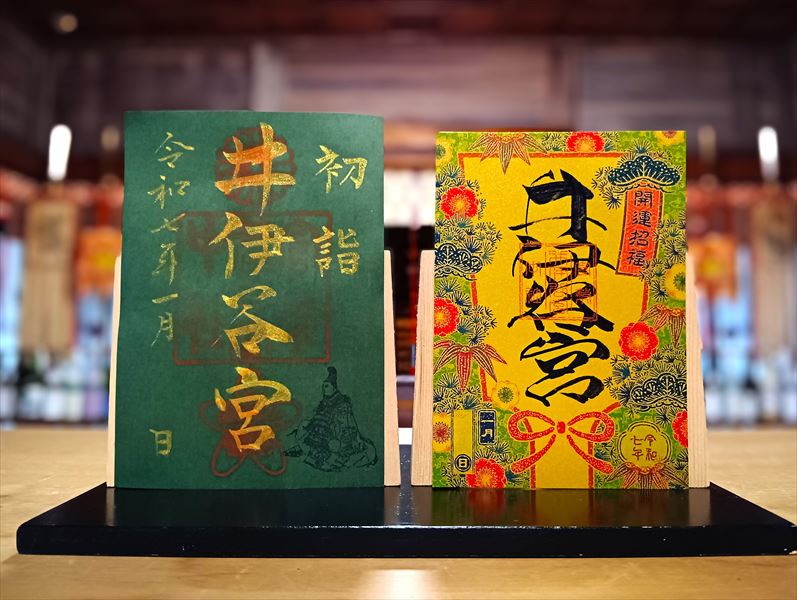 初詣
井伊谷宮
令和七年一月
日
開運招福
井伊谷宮
一月
日
令和
七年